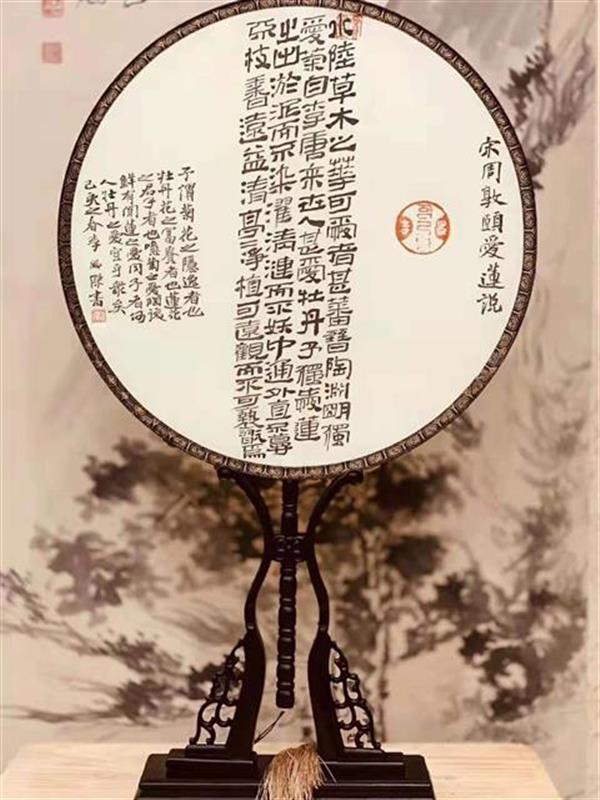 宋周敦頤愛蓮說
水陸草木之華可愛者甚蕃晉陶淵明獨
愛菊自李唐來世人甚愛牡丹予獨愛蓮
之出於泥而不染濯清漣而不妖中通外直不蔓
不枝香遠益清亭〻淨植可遠觀而不可褻翫焉
予謂菊花之隱逸者也
牡丹花之富貴者也蓮花
之君子者也噫菊之愛陶後
鮮有聞蓮之愛同予者何
人牡丹之愛宜乎眾矣
己亥之春李陳書